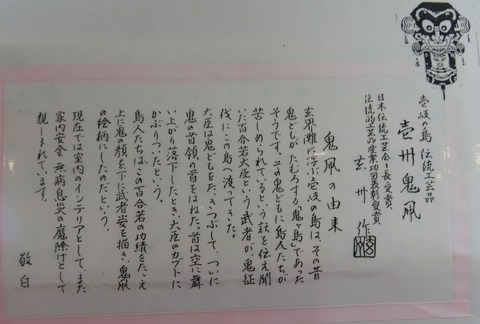 壱岐の島 伝統工芸品
壱州鬼凧
日本伝統工芸会々長受賞
伝統的工芸品産業功労表彰受賞
玄州 作
鬼凧の由来
玄界灘に浮ぶ壱岐の島は、その昔
鬼どもがたむろする「鬼ヶ島」であった
そうです。その鬼どもに島人たちが
苦しめられているという話を伝え聞
いた百合若大臣という武者が鬼征
伐にこの島へ渡ってきた。
大臣は鬼どもをたゝきつぶして、ついに
鬼の首領の首をはねた。首は空に舞
い上がり落下したとき、大臣のカブトに
かぶりついたという。
島人たちは、この百合若の功績をたゝえ
上に鬼の顔を、下に武者姿を描き、鬼凧
の絵柄にしたのだという。
現在では室内のインテリアとして、また
家内安全 無病息災の魔除けとして
親しまれています。
敬白